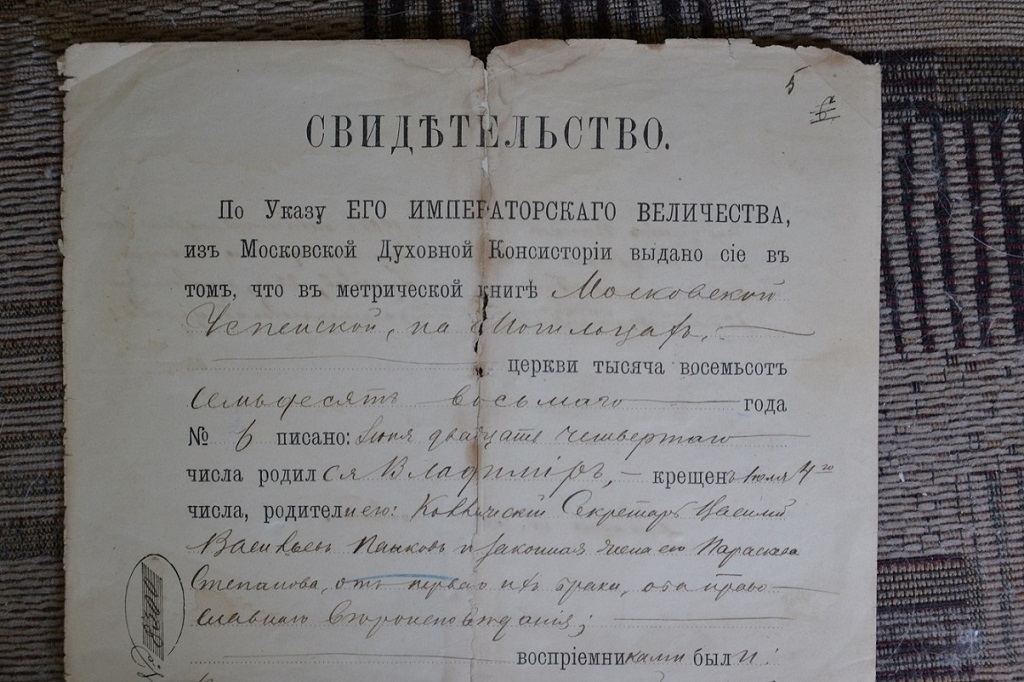 5
СВИДѢТЕЛЬСТВО.
По Указу ЕГО ИМПЕРАТОРСКАГО ВЕЛИЧЕСТВА,
изъ Московской Духовной Консисторіи выдано сіе въ
томъ, что въ метрической книгѣ Московской
Успенской, на Могильцахъ,
церкви тысяча восемьсотъ
семьдесятъ восьмаго года
№ 6 писано: Іюня двадцать четвертаго
числа родился Владиміръ, крещенъ Іюля 4го
числа, родители его: Коллежскій Секретарь Василій
Васильевъ и законная жена его Параскева
Степанова, отъ перваго ихъ брака, оба право
славнаго вѣроисповѣданія;
воспріемниками были: